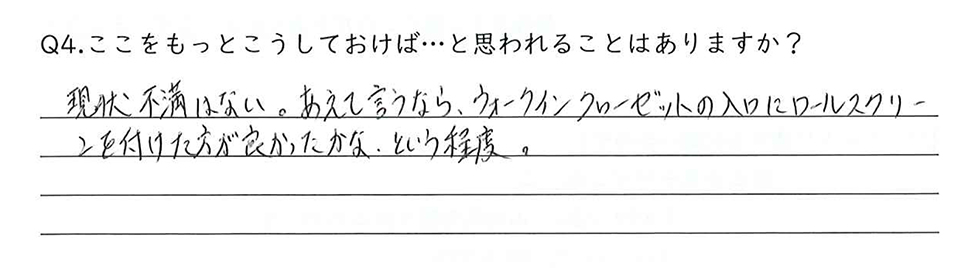 Q4.ここをもっとこうしておけば…と思われることはありますか？
現状不満はない。あえて言うなら、ウォークインクローゼットの入口にロールスクリー
ンを付けた方が良かったかな、という程度。